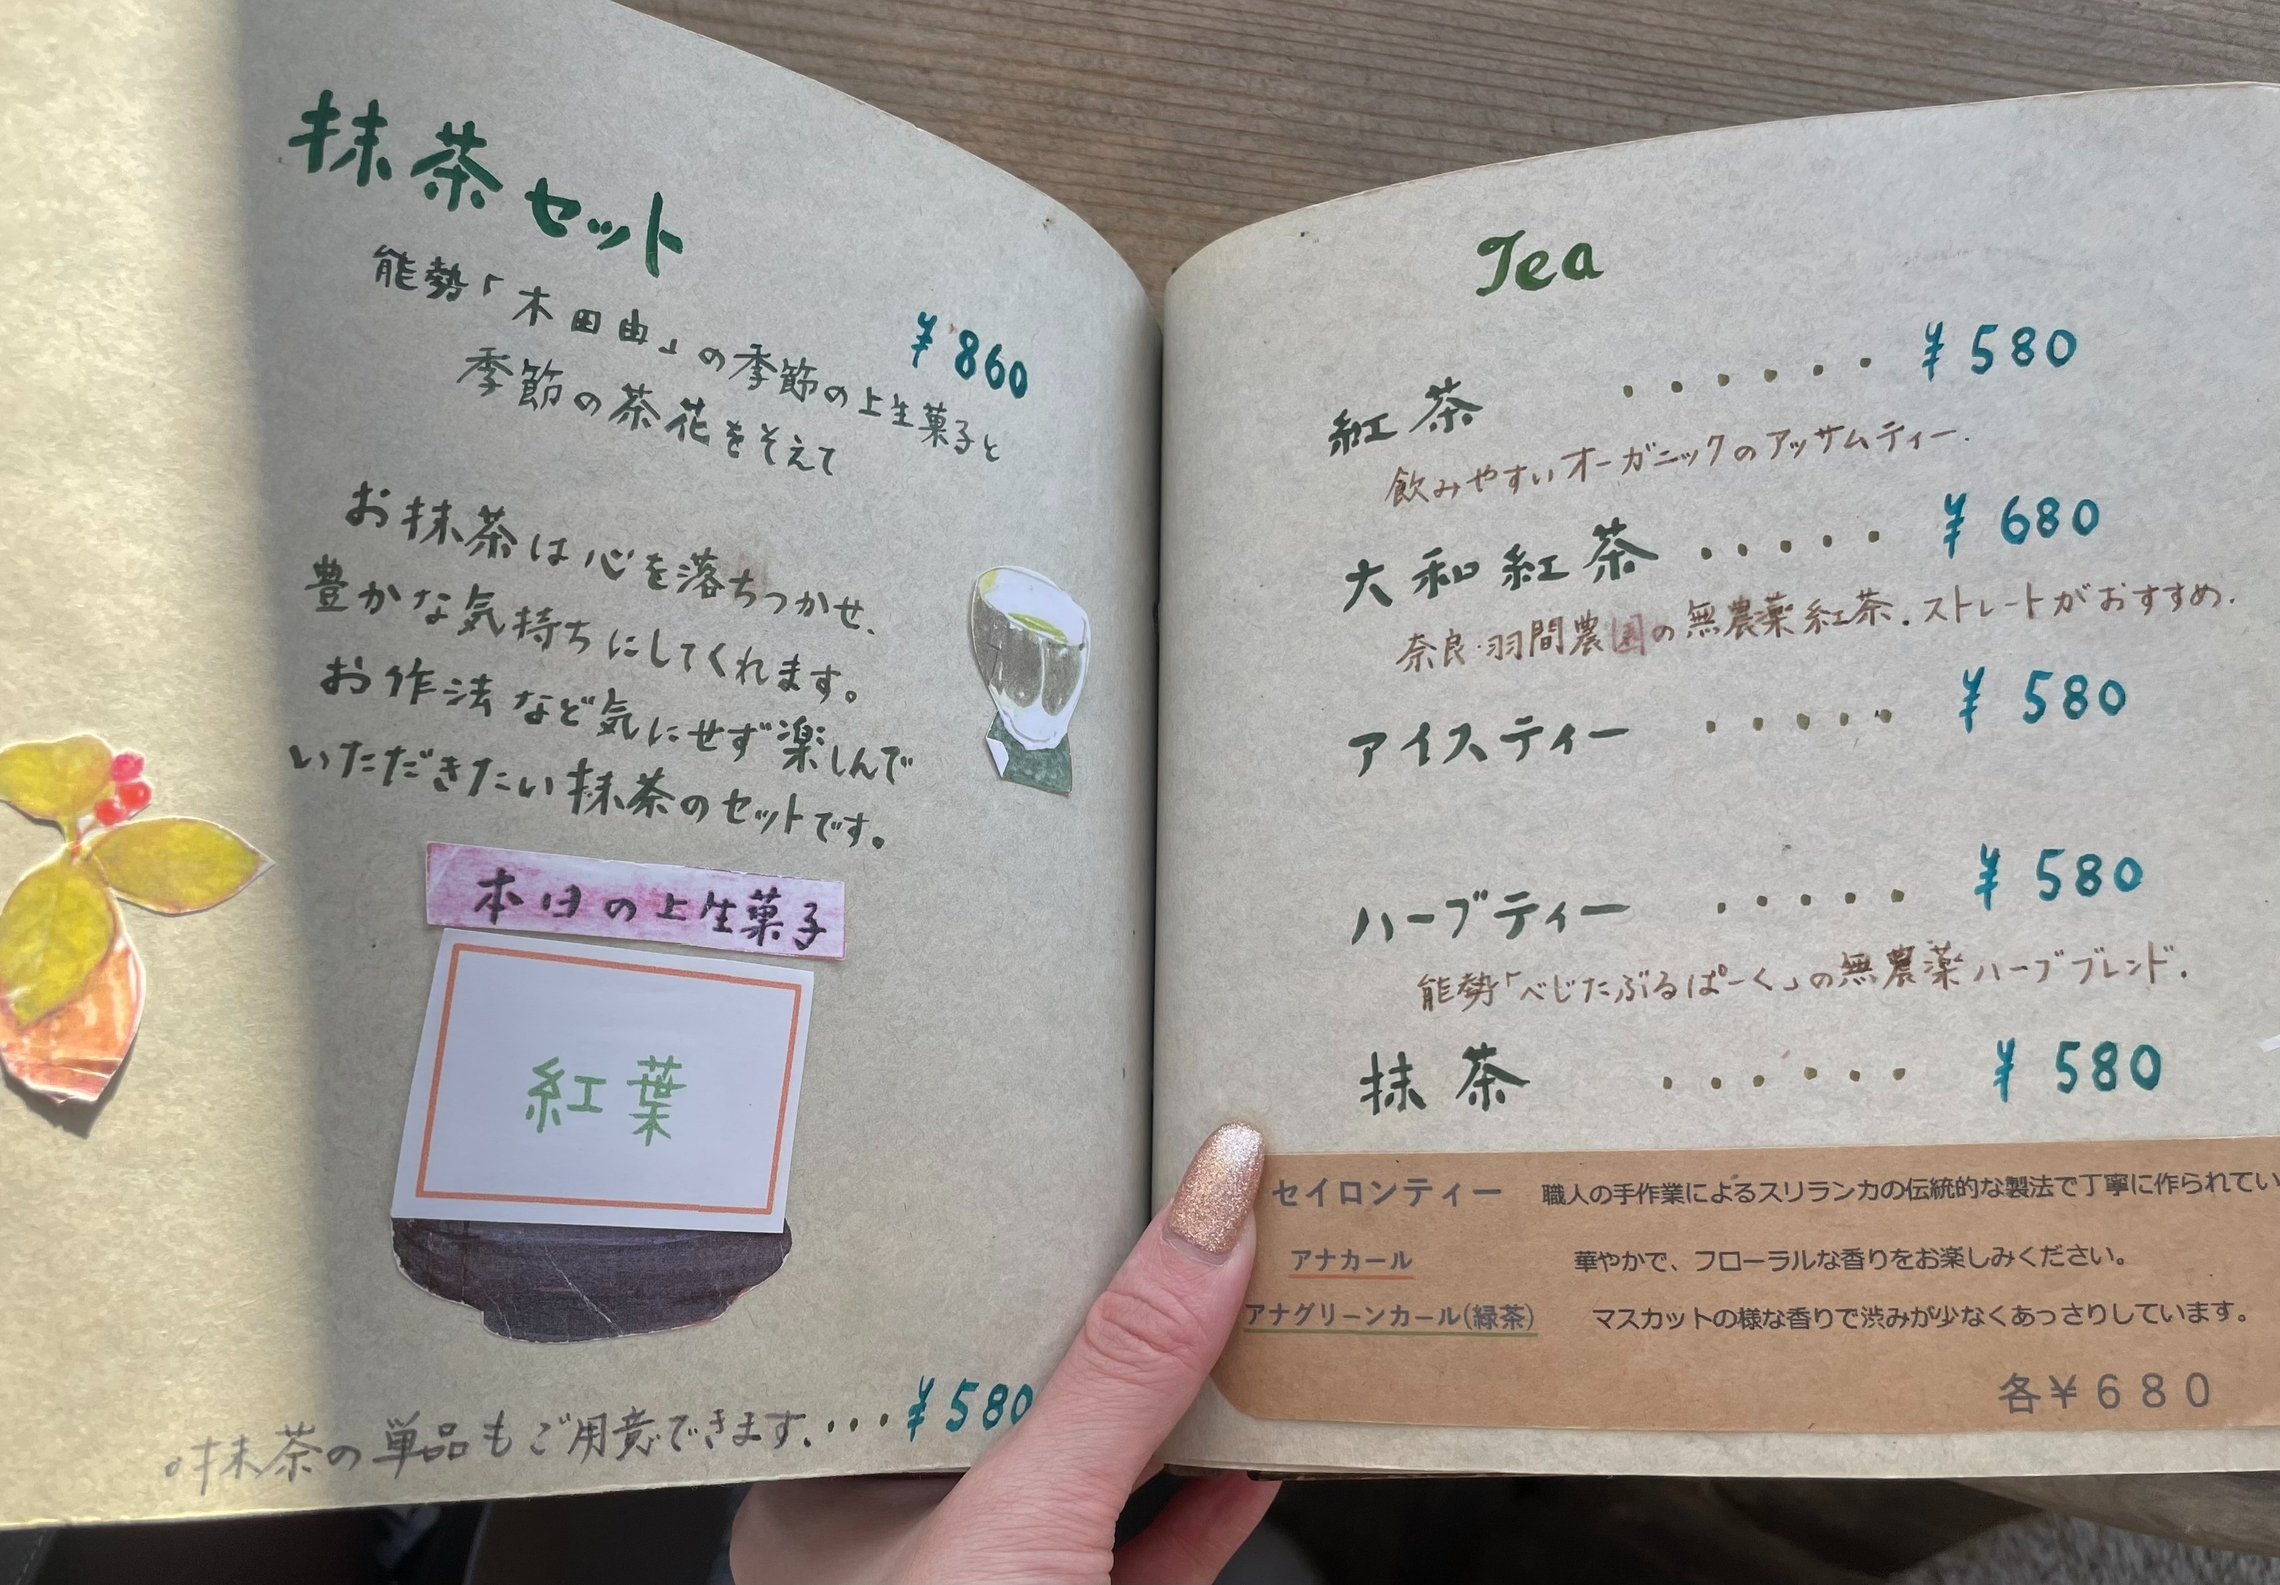 抹茶セット
¥860
能勢「木田由」の季節の上生菓子と
季節の茶花をそえて
お抹茶は心を落ちつかせ、
豊かな気持ちにしてくれます。
お作法など気にせず楽しんで
いただきたい抹茶のセットです。
本日の上生菓子
紅葉
抹茶の単品もご用意できます....¥580
Tea
紅茶 ...... ¥580
飲みやすいオーガニックのアッサムティー.
大和紅茶 ..... ¥680
奈良・羽間農園の無農薬紅茶.ストレートがおすすめ.
アイスティー ..... ¥580
ハーブティー ..... ¥580
能勢「べじたぶるぱーく」の無農薬ハーブブレンド.
抹茶 ...... ¥580
セイロンティー 職人の手作業によるスリランカの伝統的な製法で丁寧に作られてい
アナカール 華やかで、フローラルな香りをお楽しみください。
アナグリーンカール(緑茶) マスカットの様な香りで渋みが少なくあっさりしています。
各¥680